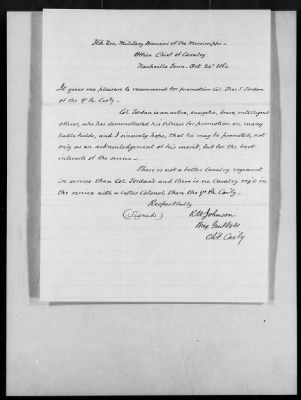 Hd. Qrs. Military Division of the Mississippi -
Office Chief of Cavalry
Nashville Tenn. Oct. 24" 1864
It gives me pleasure to recommend for promotion Col. Thos. J. Jordan
of the 9" Pa. Cav'ly -
Col. Jordan is an active, energetic, brave, intelligent
officer, who has demonstrated his fitness for promotion on many
battle fields, and I sincerely hope, that he may be promoted, not
only as an acknowledgement of his merit, but for the best
interests of the service -
There is not a better Cavalry regiment
in service than Col. Jordan's and there is no Cavalry reg't in
the service with a better Colonel than the 9" Pa. Cav'ly -
Respectfully
(Signed) R W Johnson
Brig. Genl Vols
Ch'f Cav'ly